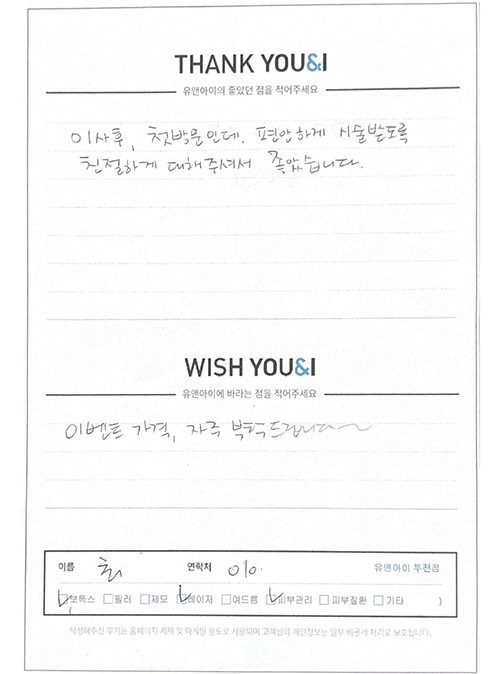 THANK YOU&I
유앤아이의 좋았던 점을 적어주세요
이사후, 첫방문인데. 편안하게 시술받도록
친절하게 대해주셔서 좋았습니다.
WISH YOU&I
유앤아이에 바라는 점을 적어주세요
이벤트 가격, 자주 부탁드립니다~
이름 연락처 010. 유앤아이 부천점
보톡스 필러 제모 레이저 여드름 피부관리 피부질환 기타 )
작성해주신 후기는 홈페이지 게재 및 마케팅 용도로 사용되며 고객님의 개인정보는 일부 비공개 처리로 보호됩니다.